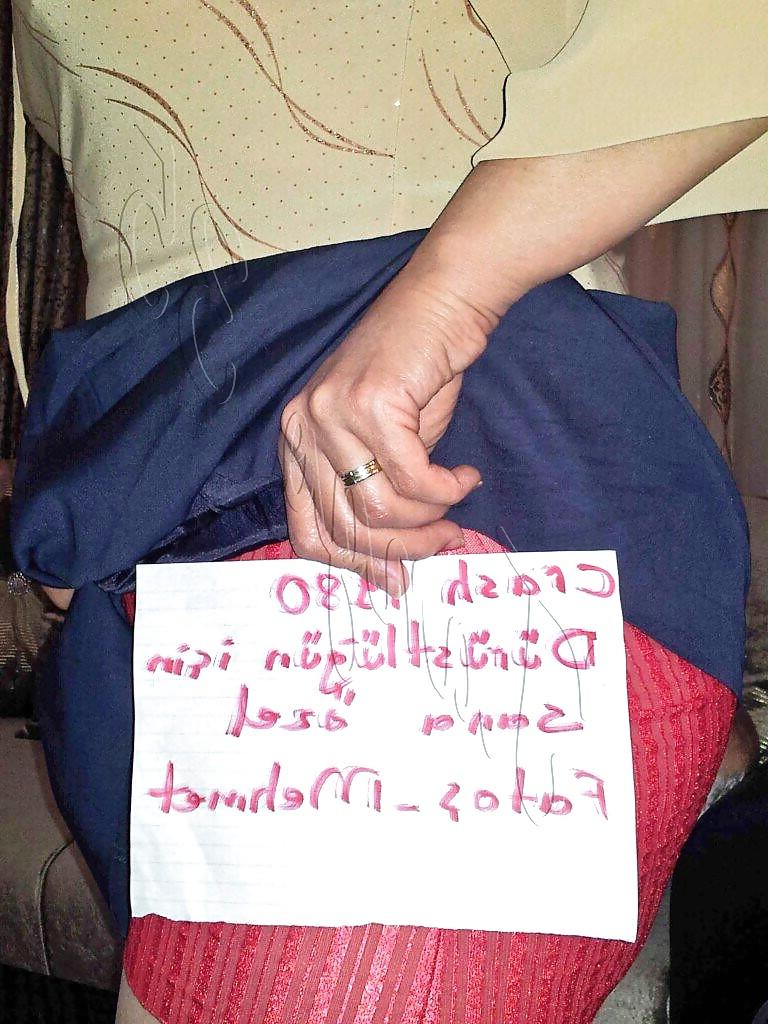 Crash 1280
Dürüstlüğün için
Sana özel
Fatoş - Mehmet